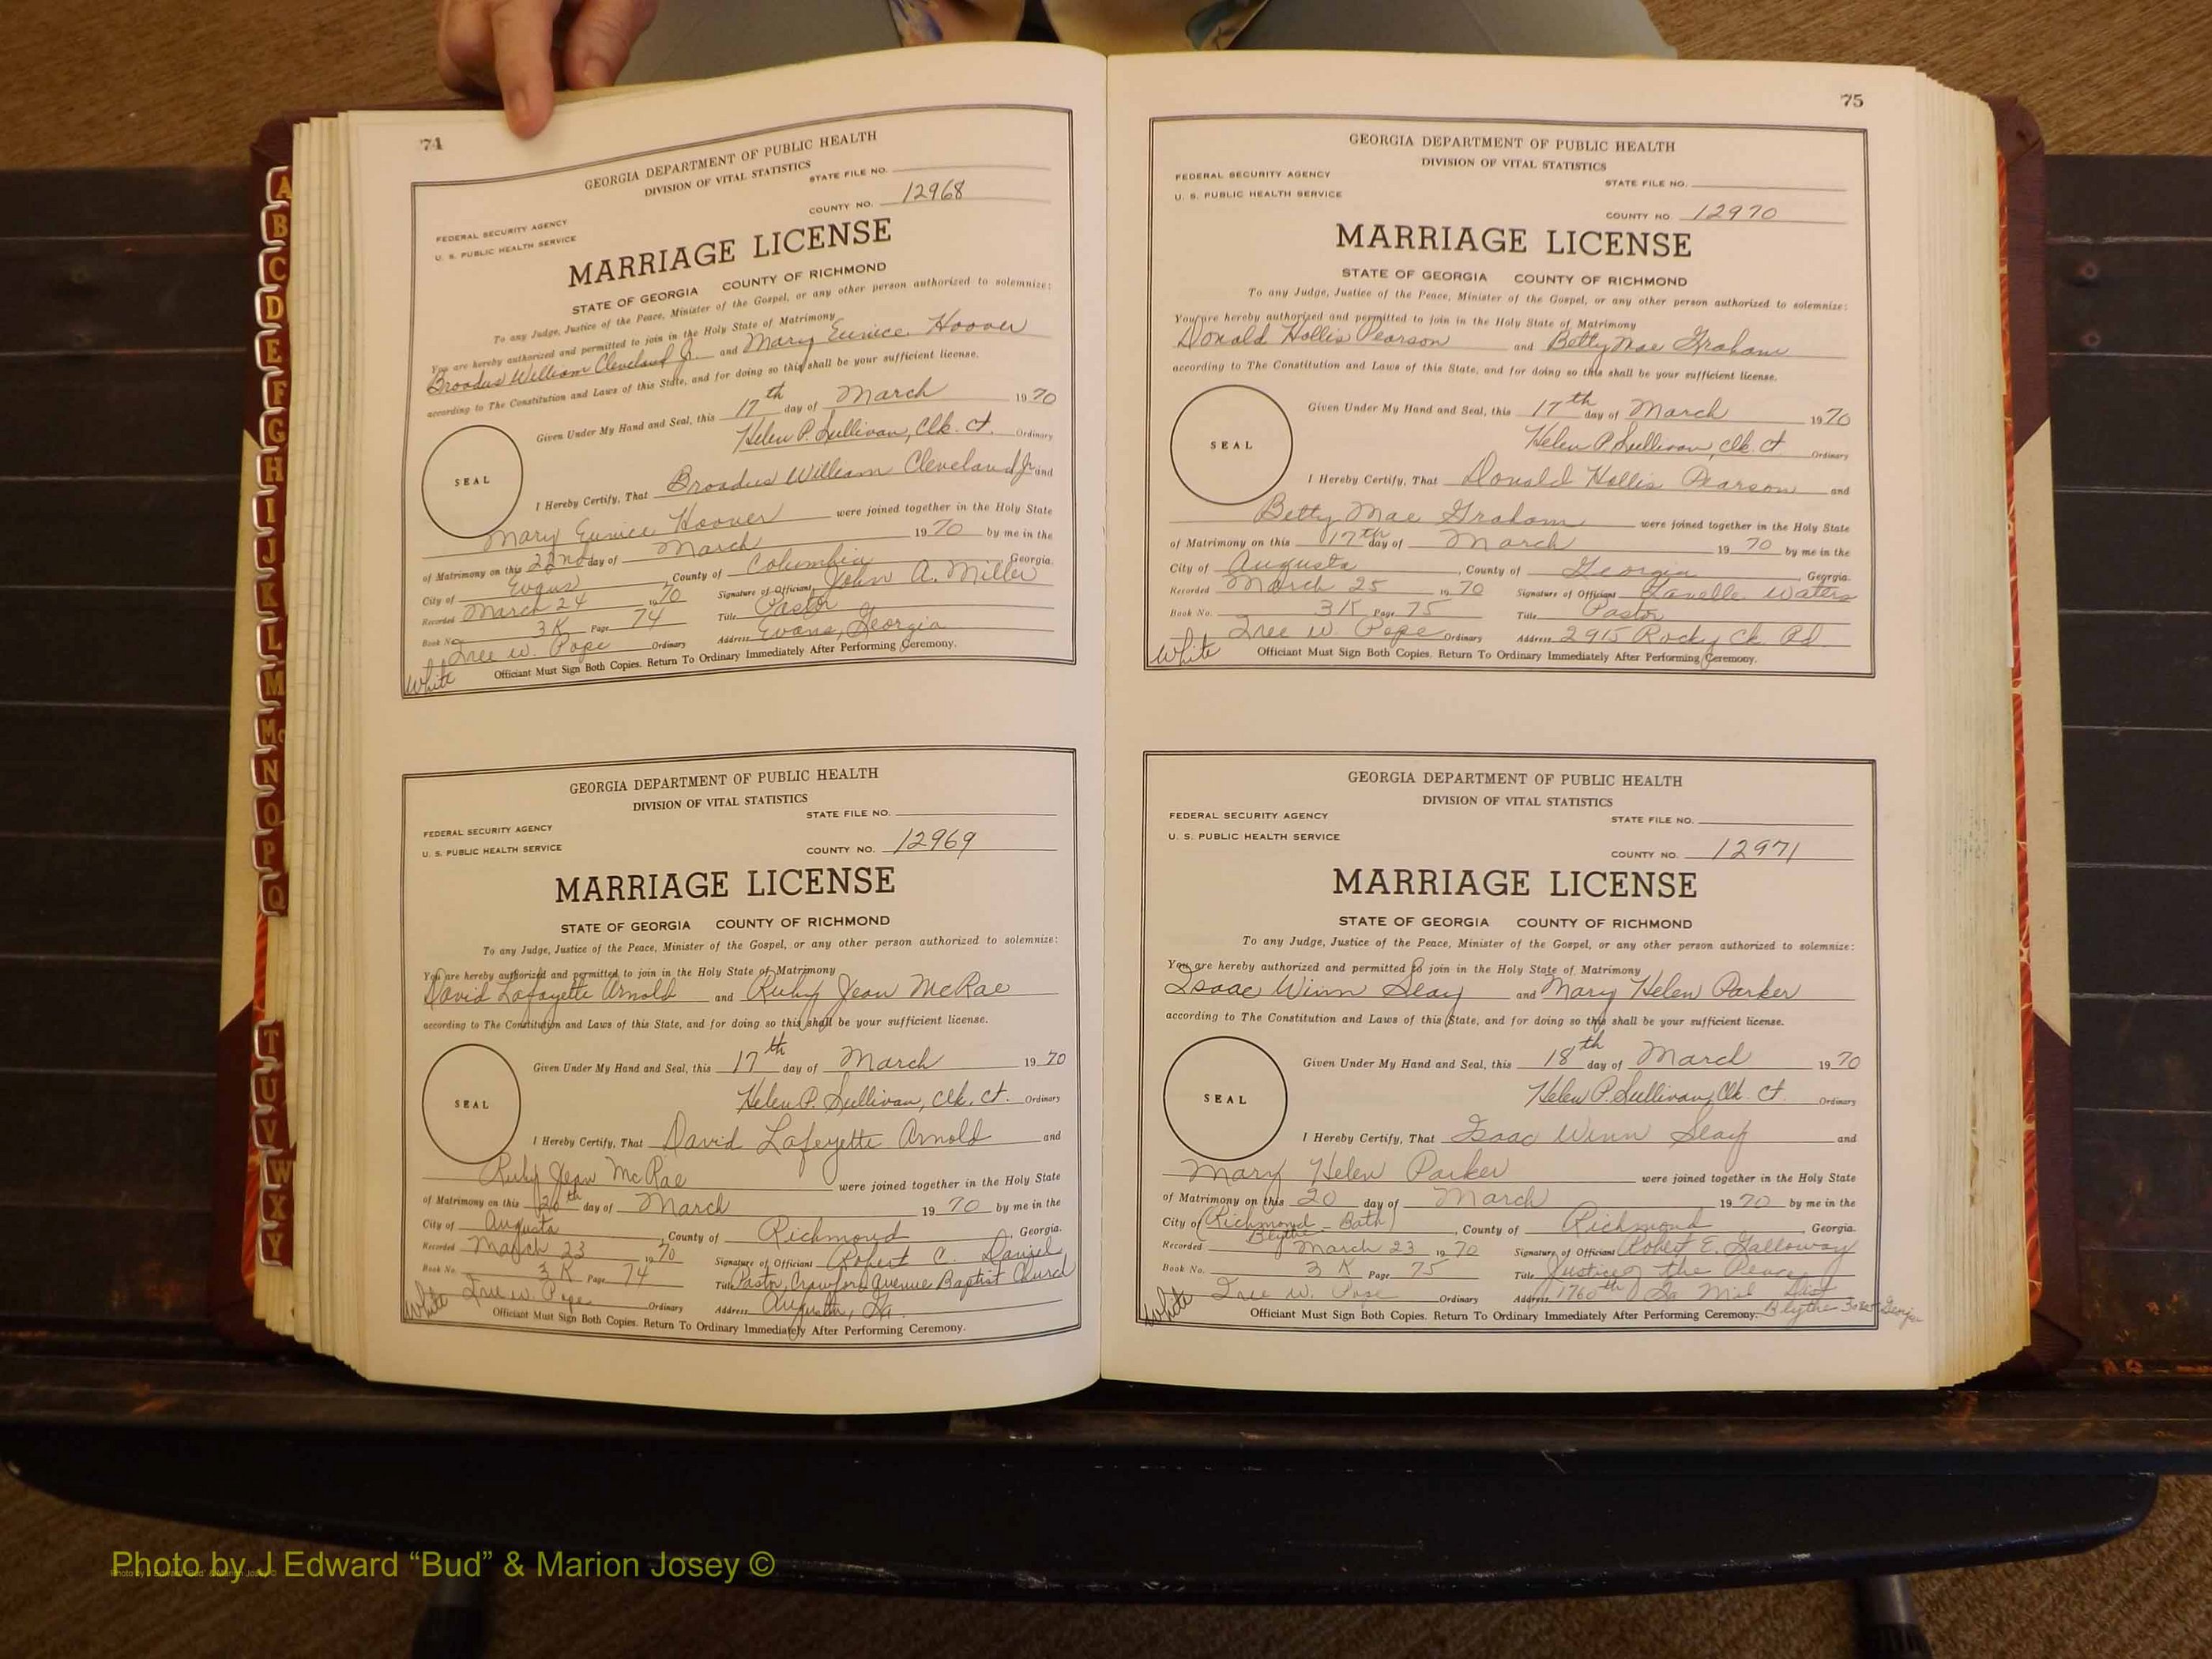 74
GEORGIA DEPARTMENT OF PUBLIC HEALTH
DIVISION OF VITAL STATISTICS
STATE FILE NO.
COUNTY NO. 12968
FEDERAL SECURITY AGENCY
U. S. PUBLIC HEALTH SERVICE
MARRIAGE LICENSE
STATE OF GEORGIA COUNTY OF RICHMOND
To any Judge, Justice of the Peace, Minister of the Gospel, or any other person authorized to solemnize:
You are hereby authorized and permitted to join in the Holy State of Matrimony
Broadus William Cleveland Jr. and Mary Eunice Hoover
according to The Constitution and Laws of this State, and for doing so this shall be your sufficient license.
Given Under My Hand and Seal, this 17th day of March 1970
Helen P. Sullivan, Clk. Ct. Ordinary
SEAL
I Hereby Certify, That Broadus William Cleveland Jr. and
Mary Eunice Hoover were joined together in the Holy State
of Matrimony on this 22nd day of March 1970 by me in the
City of Evans, County of Columbia, Georgia.
Recorded March 24 1970 Signature of Officiant John A. Miller
Book No. 3K Page 74 Title Pastor
Tree W. Pope Ordinary Address Evans, Georgia
White Officiant Must Sign Both Copies. Return To Ordinary Immediately After Performing Ceremony.
GEORGIA DEPARTMENT OF PUBLIC HEALTH
DIVISION OF VITAL STATISTICS
STATE FILE NO.
FEDERAL SECURITY AGENCY
U. S. PUBLIC HEALTH SERVICE
COUNTY NO. 12969
MARRIAGE LICENSE
STATE OF GEORGIA COUNTY OF RICHMOND
To any Judge, Justice of the Peace, Minister of the Gospel, or any other person authorized to solemnize:
You are hereby authorized and permitted to join in the Holy State of Matrimony
David Lafayette Arnold and Ruby Jean McRae
according to The Constitution and Laws of this State, and for doing so this shall be your sufficient license.
Given Under My Hand and Seal, this 17th day of March 1970
Helen P. Sullivan, Clk. Ct. Ordinary
SEAL
I Hereby Certify, That David Lafayette Arnold and
Ruby Jean McRae were joined together in the Holy State
of Matrimony on this 20th day of March 1970 by me in the
City of Augusta, County of Richmond, Georgia.
Recorded March 23 1970 Signature of Officiant Robert C. Daniel
Book No. 3K Page 74 Title Pastor, Crawford Avenue Baptist Church
Tree W. Pope Ordinary Address Augusta, Ga.
White Officiant Must Sign Both Copies. Return To Ordinary Immediately After Performing Ceremony.
75
GEORGIA DEPARTMENT OF PUBLIC HEALTH
DIVISION OF VITAL STATISTICS
FEDERAL SECURITY AGENCY
U. S. PUBLIC HEALTH SERVICE
STATE FILE NO.
COUNTY NO. 12970
MARRIAGE LICENSE
STATE OF GEORGIA COUNTY OF RICHMOND
To any Judge, Justice of the Peace, Minister of the Gospel, or any other person authorized to solemnize:
You are hereby authorized and permitted to join in the Holy State of Matrimony
Donald Hollis Pearson and Betty Mae Graham
according to The Constitution and Laws of this State, and for doing so this shall be your sufficient license.
Given Under My Hand and Seal, this 17th day of March 1970
Helen P. Sullivan, Clk. Ct. Ordinary
SEAL
I Hereby Certify, That Donald Hollis Pearson and
Betty Mae Graham were joined together in the Holy State
of Matrimony on this 17th day of March 1970 by me in the
City of Augusta, County of Georgia, Georgia.
Recorded March 25 1970 Signature of Officiant Lavelle Waters
Book No. 3K Page 75 Title Pastor
Tree W. Pope Ordinary Address 2915 Rocky Ck. Rd.
White Officiant Must Sign Both Copies. Return To Ordinary Immediately After Performing Ceremony.
GEORGIA DEPARTMENT OF PUBLIC HEALTH
DIVISION OF VITAL STATISTICS
FEDERAL SECURITY AGENCY
U. S. PUBLIC HEALTH SERVICE
STATE FILE NO.
COUNTY NO. 12971
MARRIAGE LICENSE
STATE OF GEORGIA COUNTY OF RICHMOND
To any Judge, Justice of the Peace, Minister of the Gospel, or any other person authorized to solemnize:
You are hereby authorized and permitted to join in the Holy State of Matrimony
Isaac Winn Seay and Mary Helen Parker
according to The Constitution and Laws of this State, and for doing so this shall be your sufficient license.
Given Under My Hand and Seal, this 18th day of March 1970
Helen P. Sullivan, Clk. Ct. Ordinary
SEAL
I Hereby Certify, That Isaac Winn Seay and
Mary Helen Parker were joined together in the Holy State
of Matrimony on this 20 day of March 1970 by me in the
City of (Richmond - Bath) Blythe, County of Richmond, Georgia.
Recorded March 23 1970 Signature of Officiant Robert E. Galloway
Book No. 3K Page 75 Title Justice of the Peace
Tree W. Pope Ordinary Address 1760th Ga Mil Dist
White Officiant Must Sign Both Copies. Return To Ordinary Immediately After Performing Ceremony. Blythe Georgia
A
B
C
D
E
F
G
H
I
J
K
L
M
Mc
N
O
P
Q
T
U
V
W
X
Y
Photo by J Edward “Bud” & Marion Josey ©